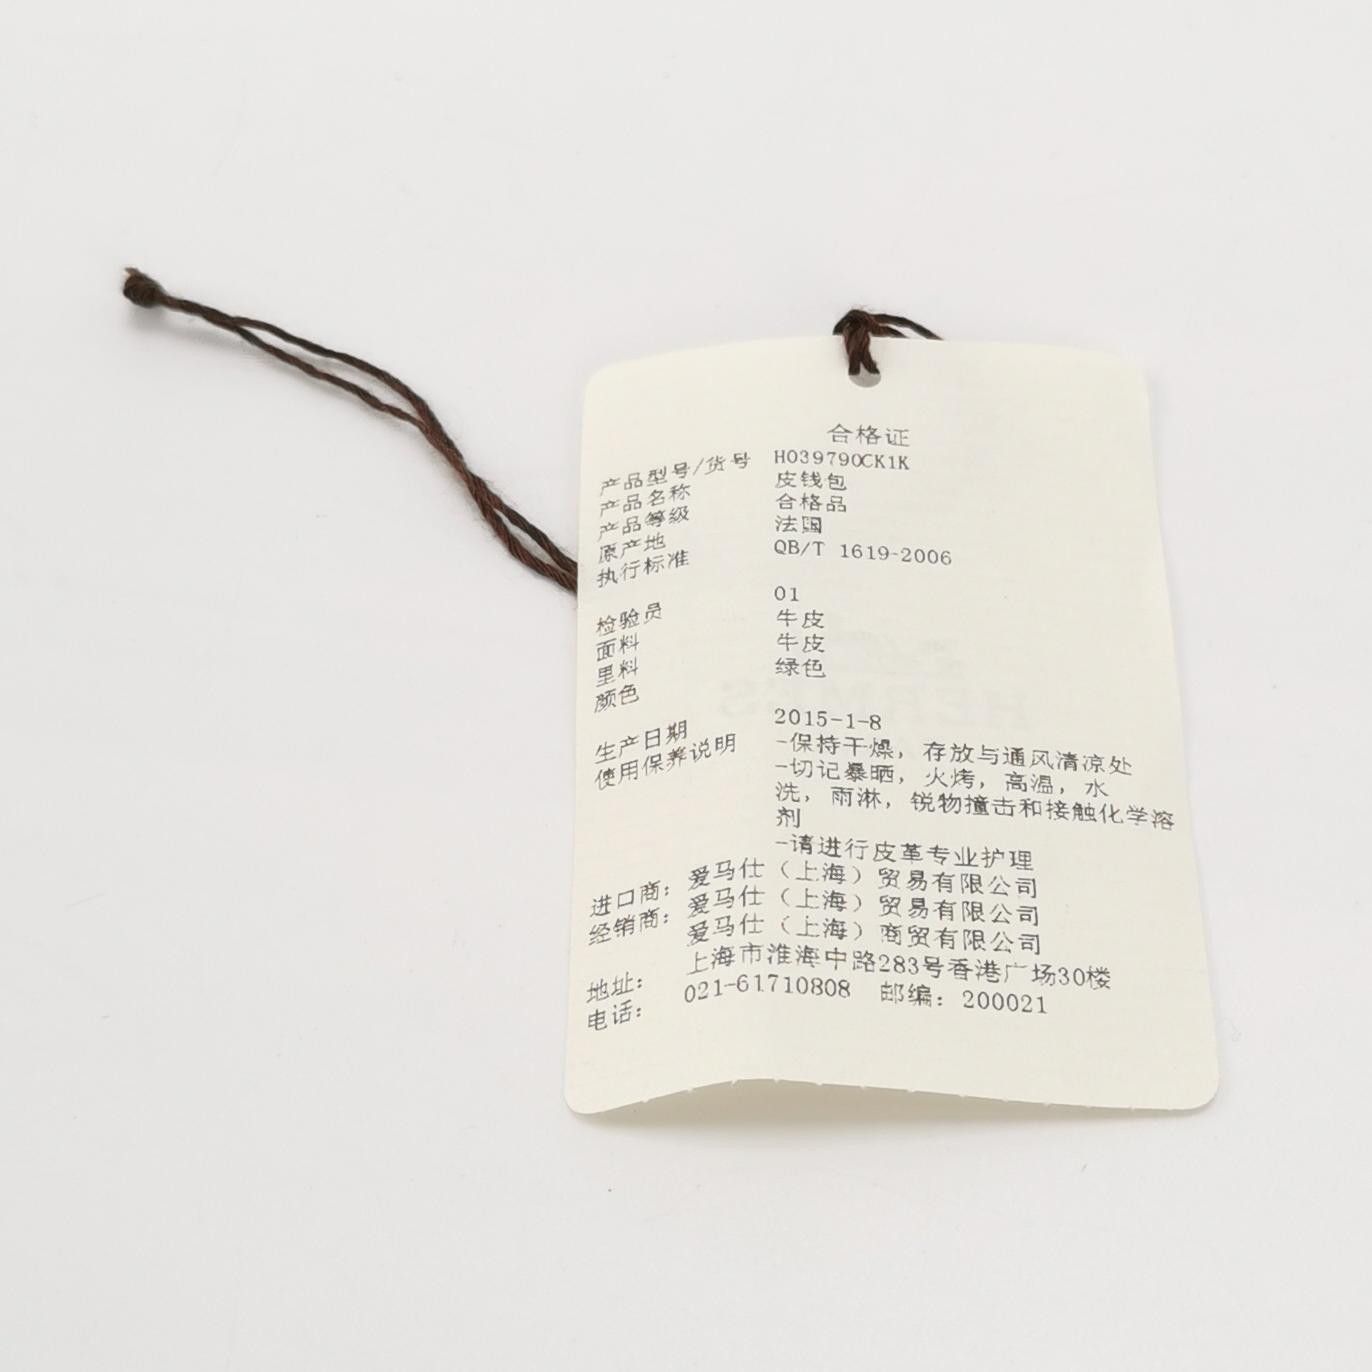 合格证
产品型号/货号 H039790CK1K
产品名称 皮钱包
产品等级 合格品
原产地 法国
执行标准 QB/T 1619-2006
检验员 01
面料 牛皮
里料 牛皮
颜色 绿色
生产日期 2015-1-8
使用保养说明 -保持干燥，存放与通风清凉处
-切记暴晒，火烤，高温，水
洗，雨淋，锐物撞击和接触化学溶
剂
-请进行皮革专业护理
进口商： 爱马仕（上海）贸易有限公司
经销商： 爱马仕（上海）贸易有限公司
爱马仕（上海）商贸有限公司
地址： 上海市淮海中路283号香港广场30楼
电话： 021-61710808 邮编：200021
HERMES